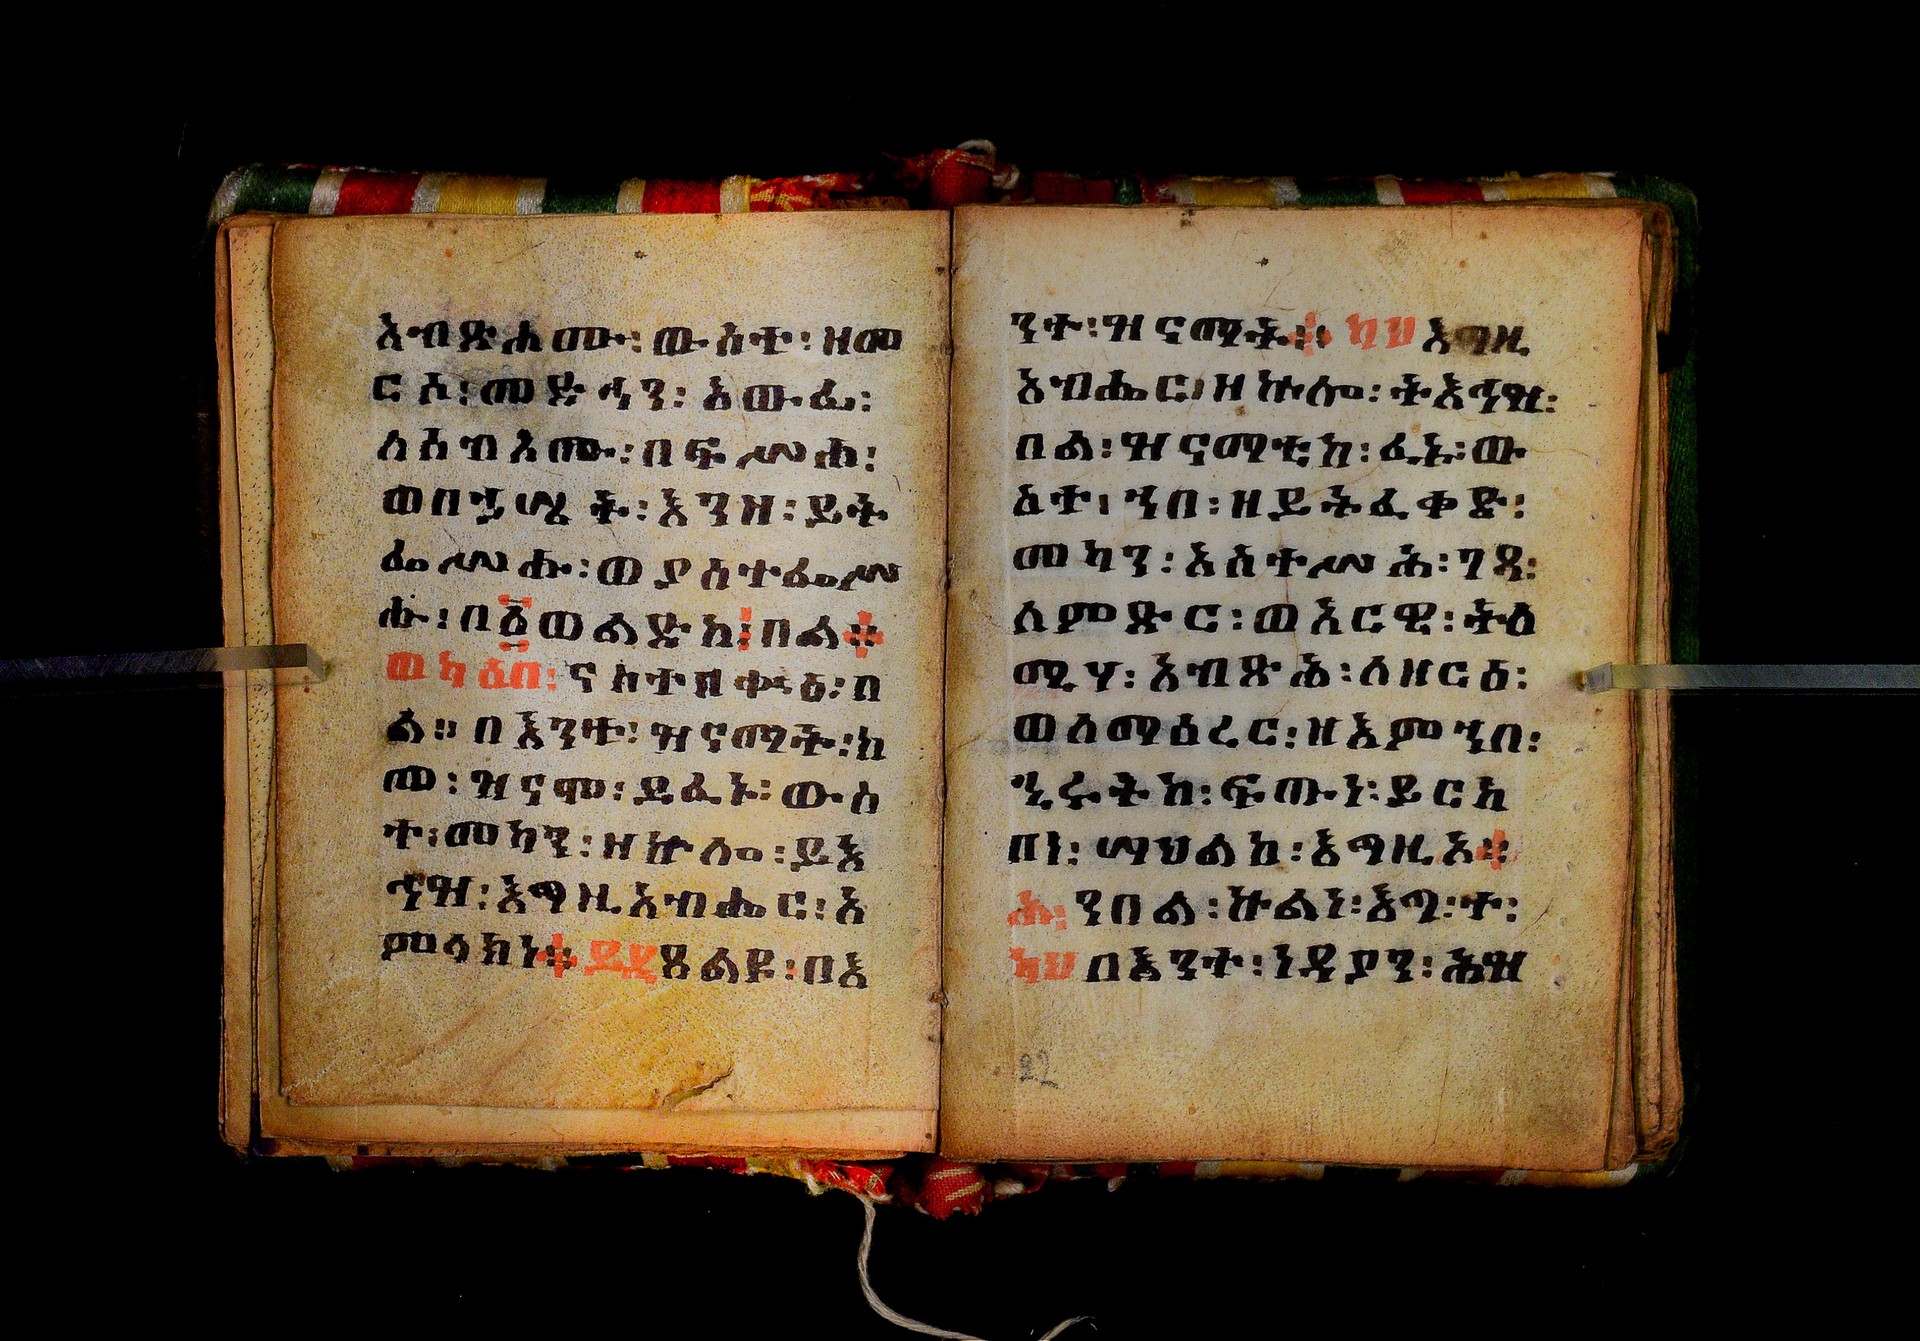 አብጽሐሙ፡ ውስተ፡ ዘመ
ርሶ፡ መድኃን፡ አውፊ፡
ለሕዝብ፡ በፍሥሐ፡
ወበኃሤት፡ እንዘ፡ ይት
ፌሥሑ፡ ወያስተፌሥ
ሑ፡ በ፩ወልድከ፡ በል።
ወካዕበ፡ ናስተበቍዕ፡ በ
ል። በእንተ፡ ዝናማት፡ ከ
መ፡ ዝናመ፡ ይፈኑ፡ ውስ
ተ፡ መካን፡ ዘኵሎ፡ ይእ
ኅዝ፡ እግዚአብሔር፡ አ
ምላክነ። ይዲ፡ ጸልዩ፡ በእ
ንተ፡ ዝናማት። ካህ እግዚ
አብሔር፡ ዘኵሎ፡ ትእኅዝ፡
በል፡ ዝናማቲከ፡ ፈኑ፡ ው
ስተ፡ ኀበ፡ ዘይትፈቀድ፡
መካን፡ አስተሥሕ፡ ገጻ፡
ለምድር፡ ወአርዊ፡ ትለ
ሚሃ፡ አብጽሕ፡ ለዘርዕ፡
ወለማዕረር፡ ዘእምኀበ፡
ኂሩትከ፡ ፍጡነ፡ ይርከ
በነ፡ ሣህልከ፡ እግዚአ።
ሕ፡ ንበል፡ ኵልነ፡ እግ፡ ተ፡
ካህ በእንተ፡ ነዳያን፡ ሕዝ